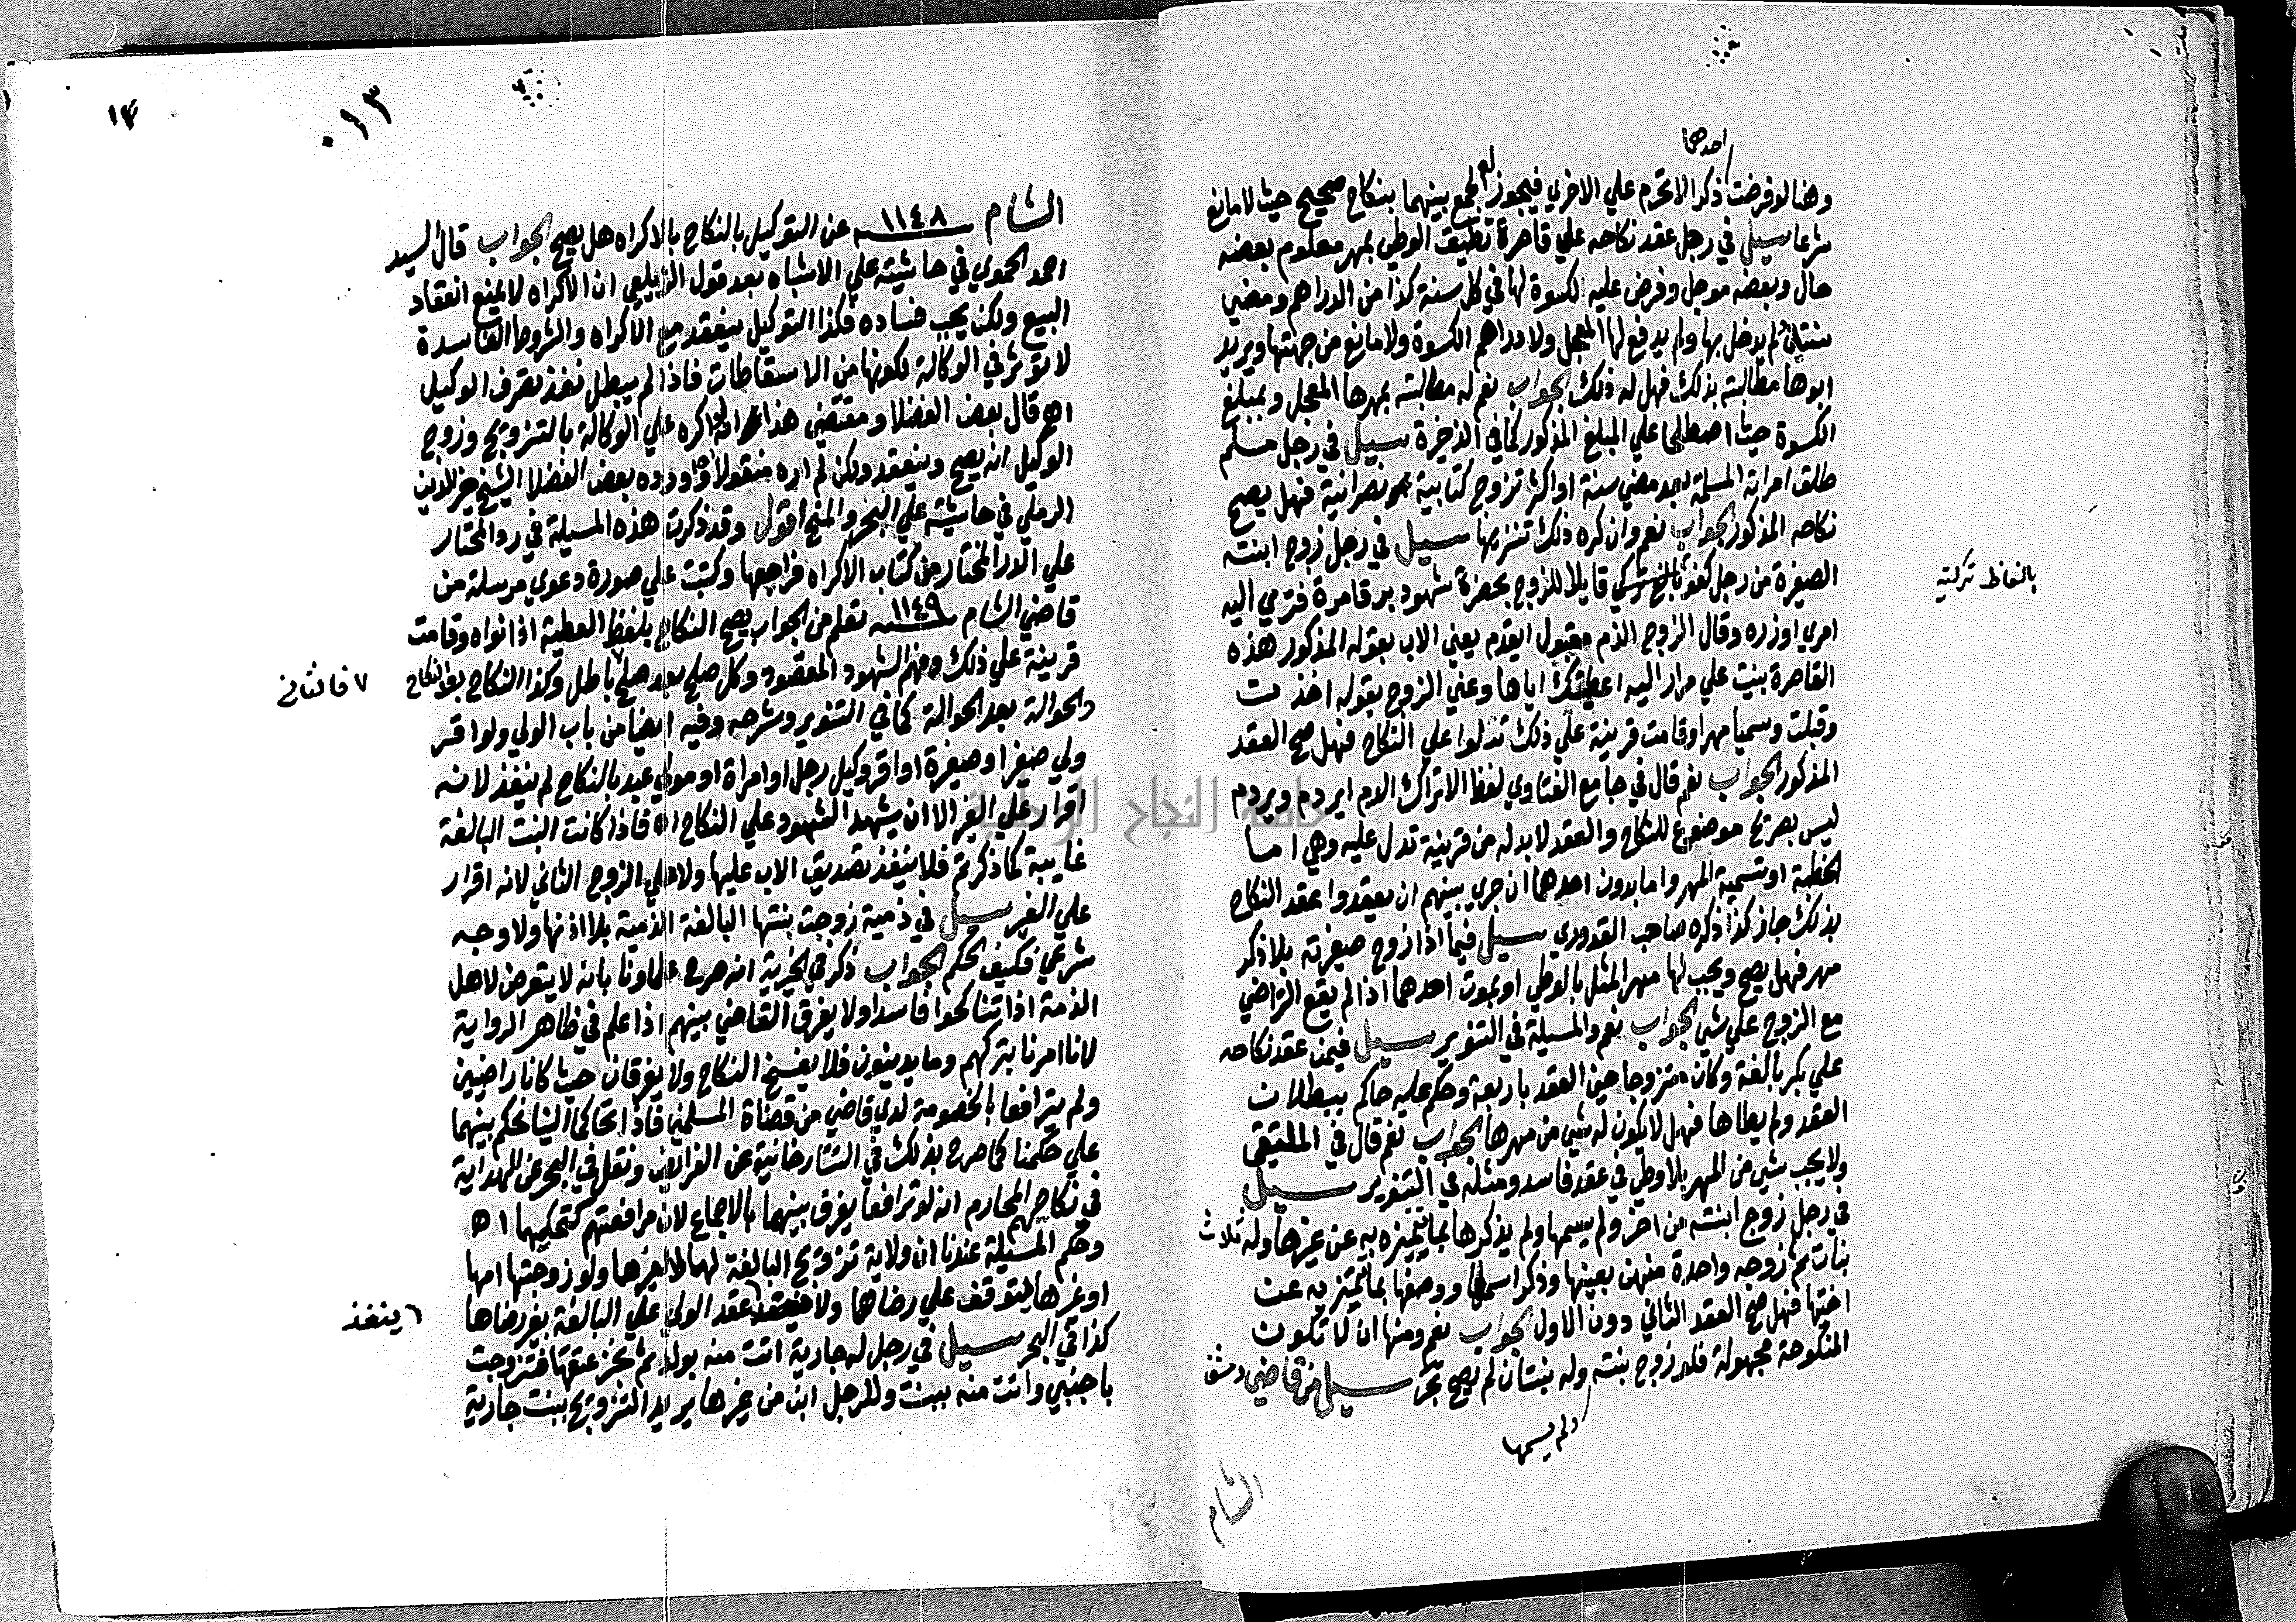 احدهما
وهنا لو فرضت ذكرا لا تحرم علي الاخري فيجوز له الجمع بينهما بنكاح صحيح حيث لا مانع
شرعا سيل في رجل عقد نكاحه علي قاصرة تطيق الوطي بمهر معلوم بعضه
حال وبعضه موجل وفرض عليه لكسوة لها في كل سنة كذا من الدراهم ومضي
سنتان لم يدخل بها ولم يدفع لها المعجل ولا دراهم الكسوة ولا مانع من جهتها ويريد
ابوها مطالبته بذلك فهل له ذلك الجواب نعم له مطالبته بمهرها المعجل وبمبلغ
الكسوة حيث اصطلحا علي المبلغ المذكور كما في الذخيرة سيل في رجل مسلم
طلق امراته المسلمة بعد مضي سنة او اكثر تزوج كتابية نصرانية فهل يصح
نكاحه المذكور الجواب نعم وان كره ذلك تنزيها سيل في رجل زوج ابنته
الصغيرة من رجل كفو قايلا للزوج بحضرة شهود بر قاصرة فزمي اليه
بالفاظ تركية
امري اوزره وقال الزوج الدم مقبول ايقدم يعني الاب بقوله المذكور هذه
القاصرة بنت علي مراد اليه اعطيتك اياها وعني الزوج بقوله اخذت
وقبلت وسميا مهرا وقامت قرينة علي ذلك تدلوا علي النكاح فهل صح العقد
المذكور الجواب نعم قال في جامع الفتاوي لفظ الاتراك الدم ايردم ويردم
ليس بصريح موضوع للنكاح والعقد لا بد له من قرينة تدل عليه وهي اما
الخطبة او تسمية المهر واما بدون احدهما ان جري بينهم ان يعقدوا عقد النكاح
بذلك جاز كذا ذكره صاحب القدوري سيل فيما اذا زوج صغيرته بلا ذكر
مهر فهل يصح ويجب لها مهر المثل بالوطي او بموت احدهما اذا لم يقع التراضي
مع الزوج علي شي الجواب نعم والمسيلة في التنوير سيل فيمن عقد نكاحه
علي بكر بالغة وكان متزوجا حين العقد باربعة وحكم عليه حاكم ببطلان
العقد ولم يطاها فهل لا يكون له شي من مهرها الجواب نعم قال في الملتقي
ولا يجب شي من المهر بلا وطي في عقد فاسد ومثله في التنوير سيل
في رجل زوج ابنته من اخر ولم يسمها ولم يذكرها بما تتميز به عن غيرها وله ثلاث
بنات ثم زوجه واحدة منهن بعينها وذكر اسمها ووصفها بما تتميز به عن
اختها فهل صح العقد الثاني دون الاول الجواب نعم ومنها ان لا تكون
المنكوحة مجهولة فلو زوج بنته وله بنتان لم يصح بحر سيل من قاضي دمشق
ولم يسمها
الشام
١٣
٠١٣
الشام ١١٤٨ سنه عن التوكيل بالنكاح بالاكراه هل يصح الجواب قال السيد
احمد الحموي في حاشيته علي الاشباه بعد قول الزيلعي ان الاكراه لا يمنع انعقاد
البيع ولكن يجب فساده فكذا التوكيل ينعقد مع الاكراه والشروط الفاسدة
لا تؤثر في الوكالة لكونها من الاسقاطات فاذا لم يبطل نفذ تصرف الوكيل
اه قال بعض الفضلا ومقتضي هذا انه لو اكره علي الوكالة بالتزويج وزوج
الوكيل انه يصح وينعقد ولكن لم اره منقولا وروده بعض الفضلا الشيخ خير الدين
الرملي في حاشيته علي البحر والمنح اقول وقد ذكرت هذه المسيلة في رد المحتار
علي الدر المختار من كتاب الاكراه فراجعها وكتبت علي صورة دعوي مرسلة من
قاضي الشام ١١٤٩ سنه تعلم من الجواب يصح النكاح بلفظ العطية اذا نواه وقامت
قرينة علي ذلك وفهم الشهود المقصود وكل صلح بعد صلح باطل وكذا النكاح بعد النكاح
٧ فالثاني
والحوالة بعد الحوالة كما في التنوير وشرحه وفيه ايضا من باب الولي ولو اقر
ولي صغير او صغيرة او اقر وكيل رجل او امراة او مولي عبد بالنكاح لم ينفذ لانه
اقرار علي الغير الا ان يشهد الشهود علي النكاح اه فاذا كانت البنت البالغة
غايبة كما ذكرتم فلا ينفذ تصديق الاب عليها ولا علي الزوج الثاني لانه اقرار
علي الغير سيل في ذمية زوجت بنتها البالغة الذمية بلا اذنها ولا وجه
شرعي فكيف الحكم الجواب ذكر في الخيرية انه صرح علماونا بانه لا يتعرض لاهل
الذمة اذا تناكحوا فاسدا ولا يفرق القاضي بينهم اذا علم في ظاهر الرواية
لانا امرنا بتركهم وما يدينون فلا يفسخ النكاح ولا يفرقان حيث كانا راضيين
ولم يترافعا بالخصومة لدي قاضي من قضاة المسلمين فاذا تحاكما الينا نحكم بينهما
علي حكمنا كما صرح بذلك في التتارخانية عن الفرايض ونقل في البحر عن الهداية
في نكاح المحارم انه لو ترافعا يفرق بينهما بالاجماع لان مرافعتهم كتحكيمها اه
وحكم المسيلة عندنا ان ولاية تزويج البالغة لها لا لغيرها ولو زوجتها امها
او غيرها يتوقف علي رضاها ولا عقد الولي علي البالغة بغير رضاها
٦ ينفذ
كذا في البحر سيل في رجل له جارية اتت منه بولد ثم نجز عتقها فتزوجت
باجنبي واتت منه ببنت وللرجل ابن من غيرها يريد التزويج ببنت جارية
جامعة النجاح الوطنية